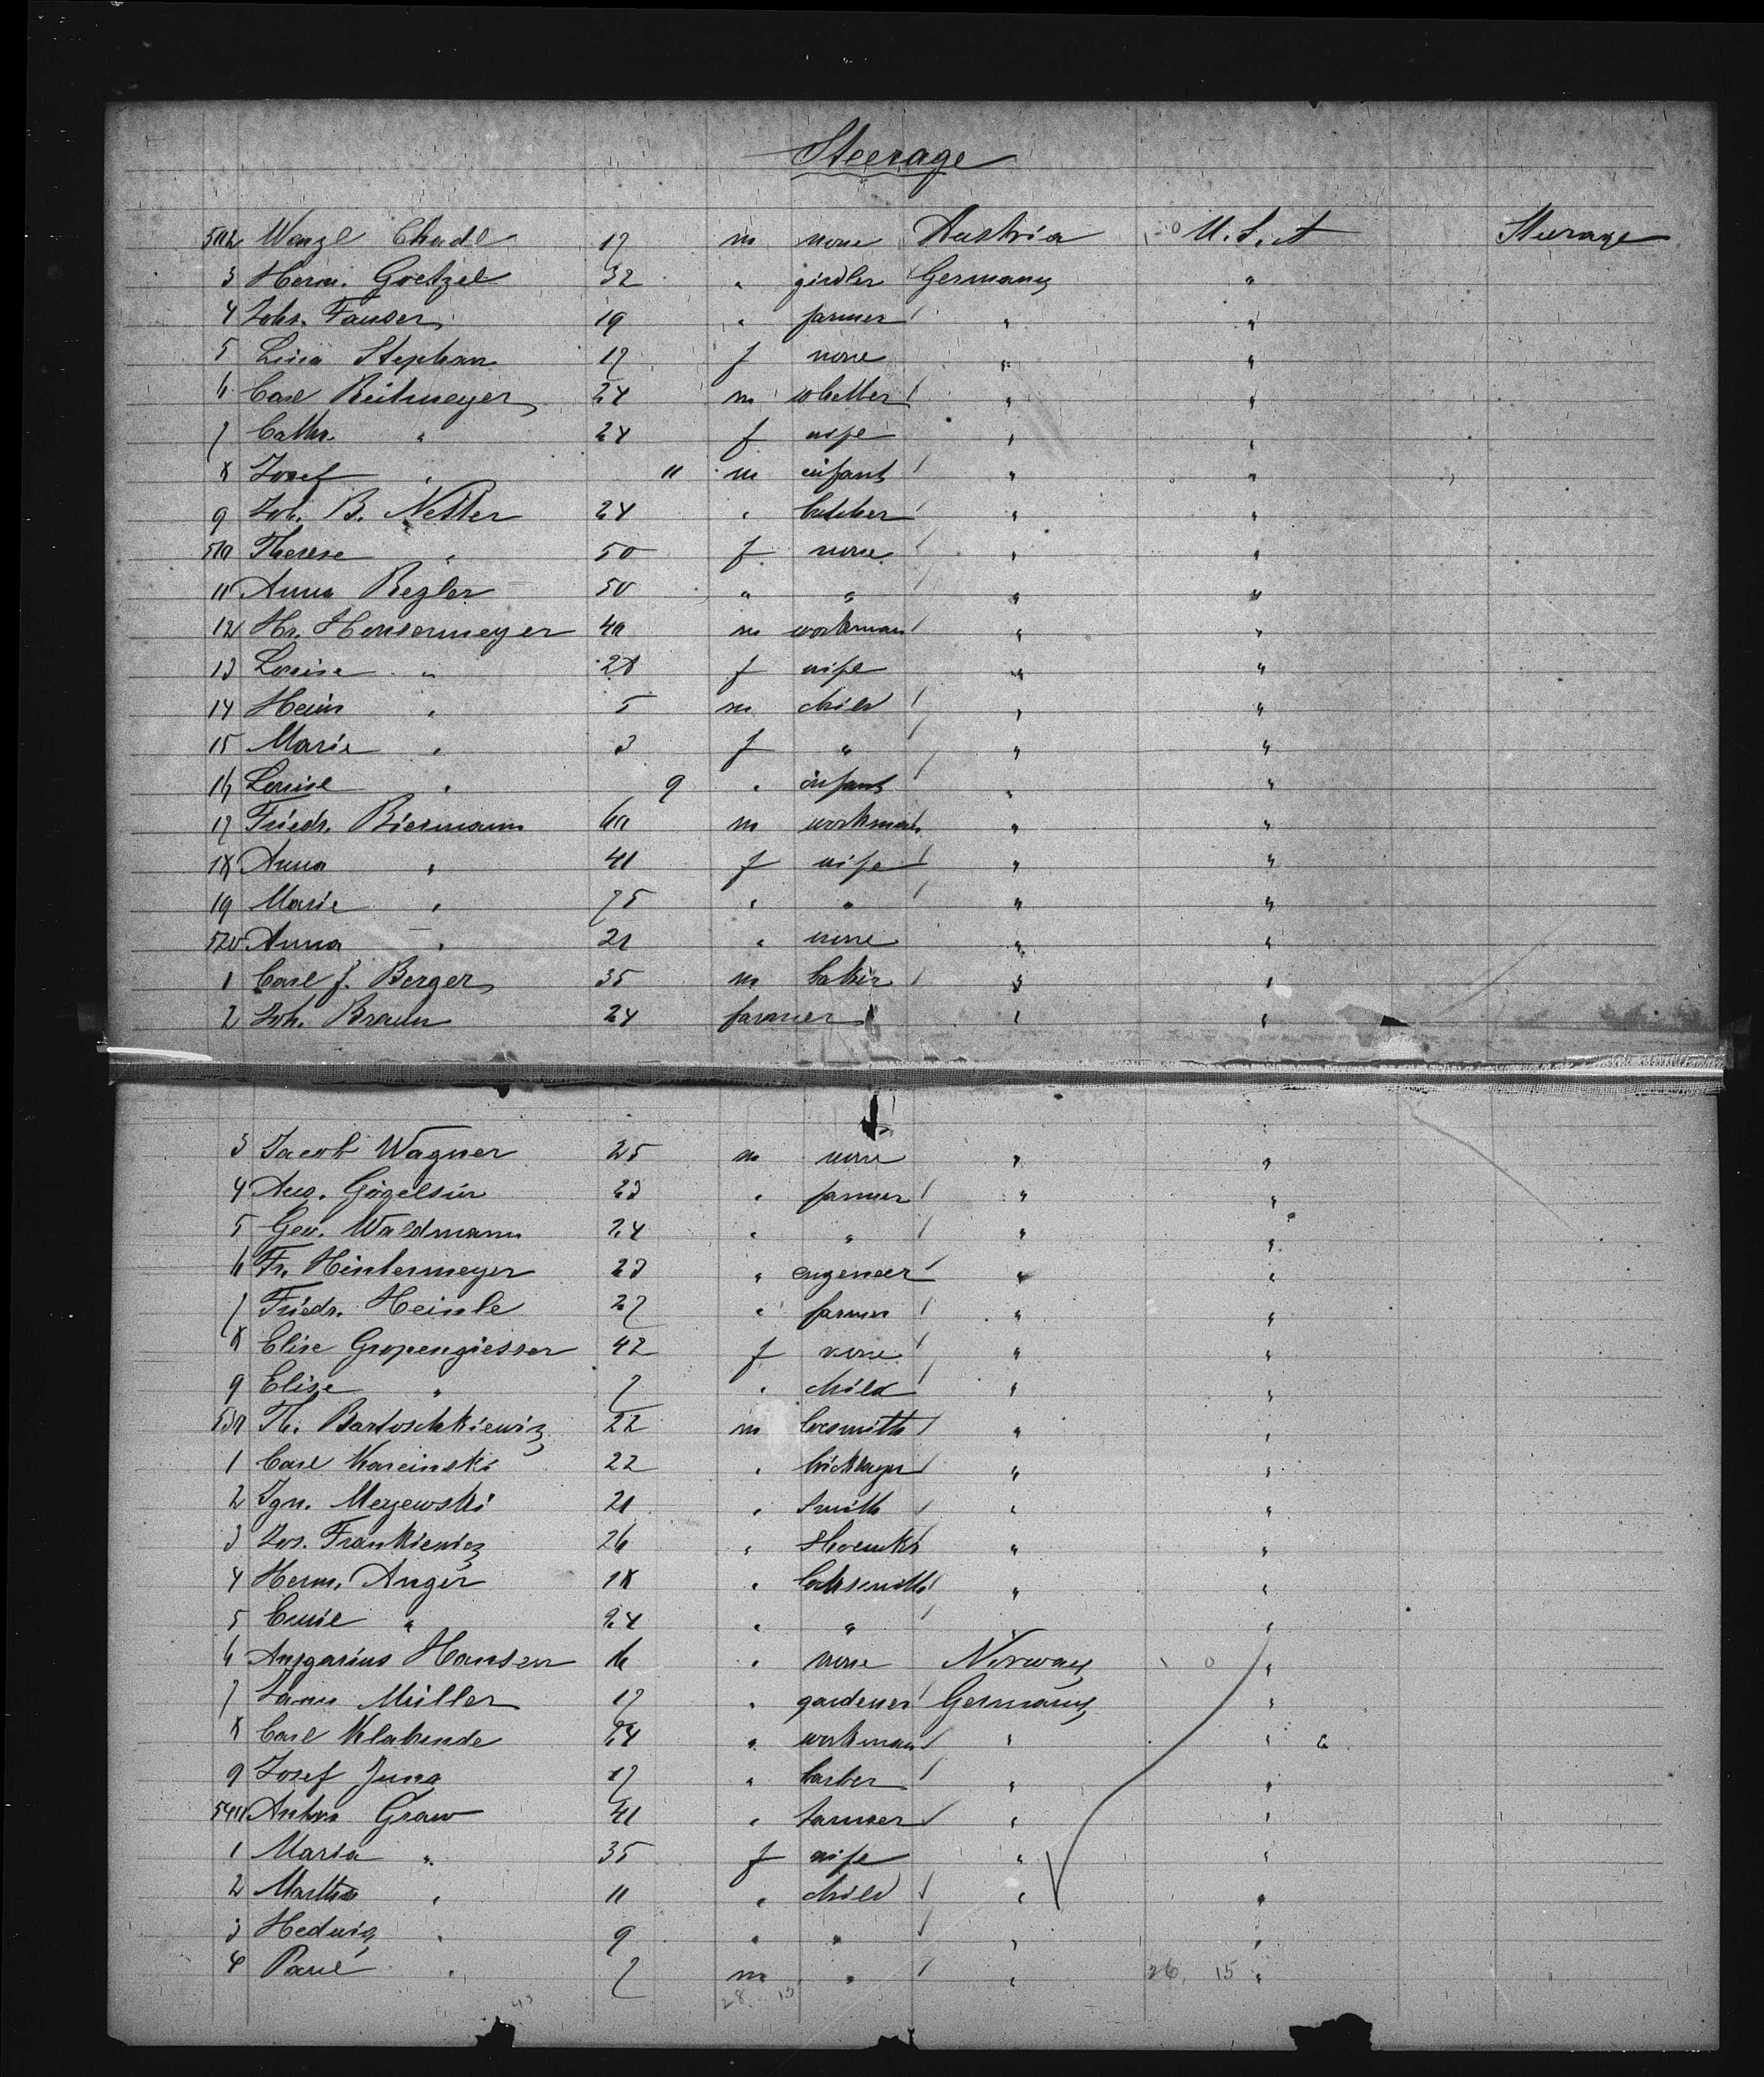 Steerage
502 Wenzl Chadl 17 m none Austria U.S.A Steerage
3 Herm. Goetzel 32 " girdler Germany "
4 Johs. Fauser 19 " farmer " "
5 Lina Stephan 17 f none " "
6 Carl Reitmeyer 24 m whetter " "
7 Cathr. " 24 f wife " "
8 Josef " 11 m infant " "
9 Joh. B. Netter 24 " butcher " "
510 Therese " 50 f none " "
11 Anna Regler 50 " " " "
12 Hr. Hensermeyer 40 m workman " "
13 Louise " 28 f wife " "
14 Hein " 5 m child " "
15 Marie " 3 f " " "
16 Louise " 9 " infant " "
17 Friedr. Biermann 60 m workman " "
18 Anna " 41 f wife " "
19 Marie " 75 " " " "
520 Anna " 21 " none " "
1 Carl J. Berger 35 m baker " "
2 Joh. Braun 24 farmer " "
3 Jacob Wagner 25 m none " "
4 Aug. Gögelsin 23 " farmer " "
5 Geo. Waldmann 24 " " " "
6 Fr. Hintermeyer 23 " engeneer " "
7 Friedr. Heinle 27 " farmer " "
8 Elise Gropengiesser 42 f none " "
9 Elise " 7 " child " "
530 Th. Bartoschkiewiz 22 m locsmith " "
1 Carl Karcinski 22 " bricklayer " "
2 Ign. Meyewski 21 " Smith " "
3 Jos. Frankiewicz 26 " Shoemkr " "
4 Herm. Anger 18 " locksmith " "
5 Emil " 24 " " " "
6 Ansgarius Hansen 16 " none Norway "
7 Janns Müller 17 " gardener Germany "
8 Carl Klabunde 24 " workman " "
9 Josef Jung 17 " barber " "
540 Anton Graw 41 " farmer " "
1 Maria " 35 f wife " "
2 Martha " 11 " child " "
3 Hedwig " 9 " " " "
4 Paul " 7 m " " 26, 15 "
28 15